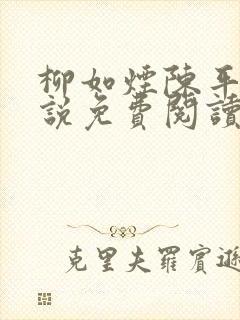 柳如煙陳平
說免費閱讀
克里夫羅賓遜